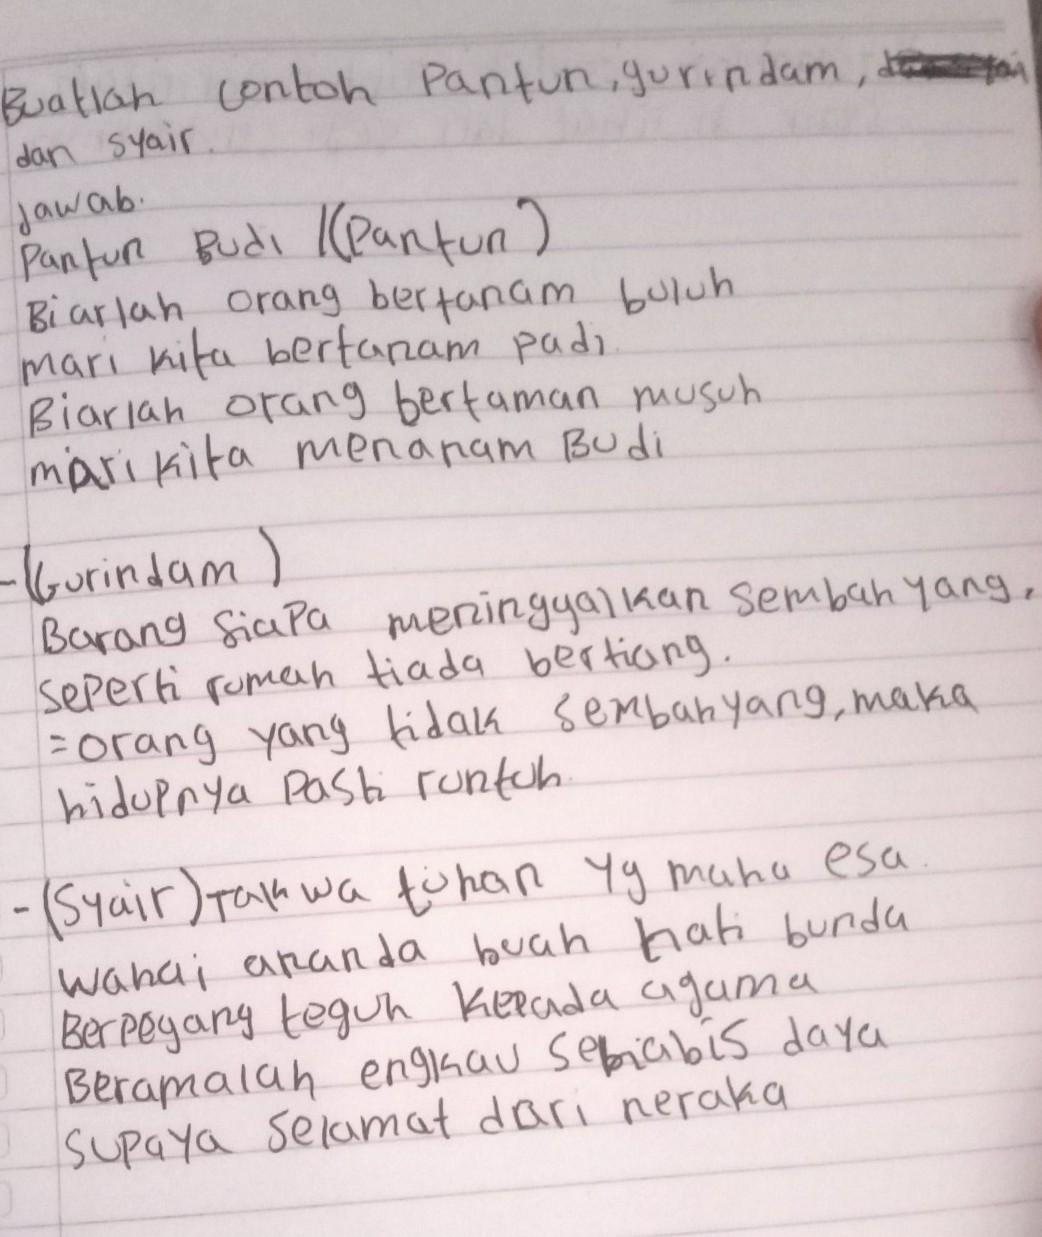 Buatlah contoh Pantun, gurindam,
dan syair.
Jawab.
Pantun Budi (Pantun)
Biarlah orang bertanam buluh
mari kita bertanam padi
Biarlah orang bertaman musuh
mari kita menanam Budi
-(Gurindam)
Barang Siapa meninggalkan Sembah yang,
seperti rumah tiada bertiang.
=orang yang tidak sembahyang, maka
hidupnya Pasti runtuh.
-(Syair) Takwa tuhan yg maha esa.
wahai ananda buah hati bunda
Berpegang teguh kepada agama
Beramalah engkau sehabis daya
supaya selamat dari neraka